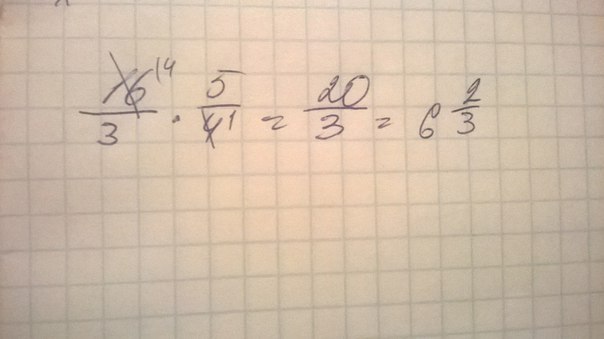 16/3 · 5/4 = 20/3 = 6 2/3